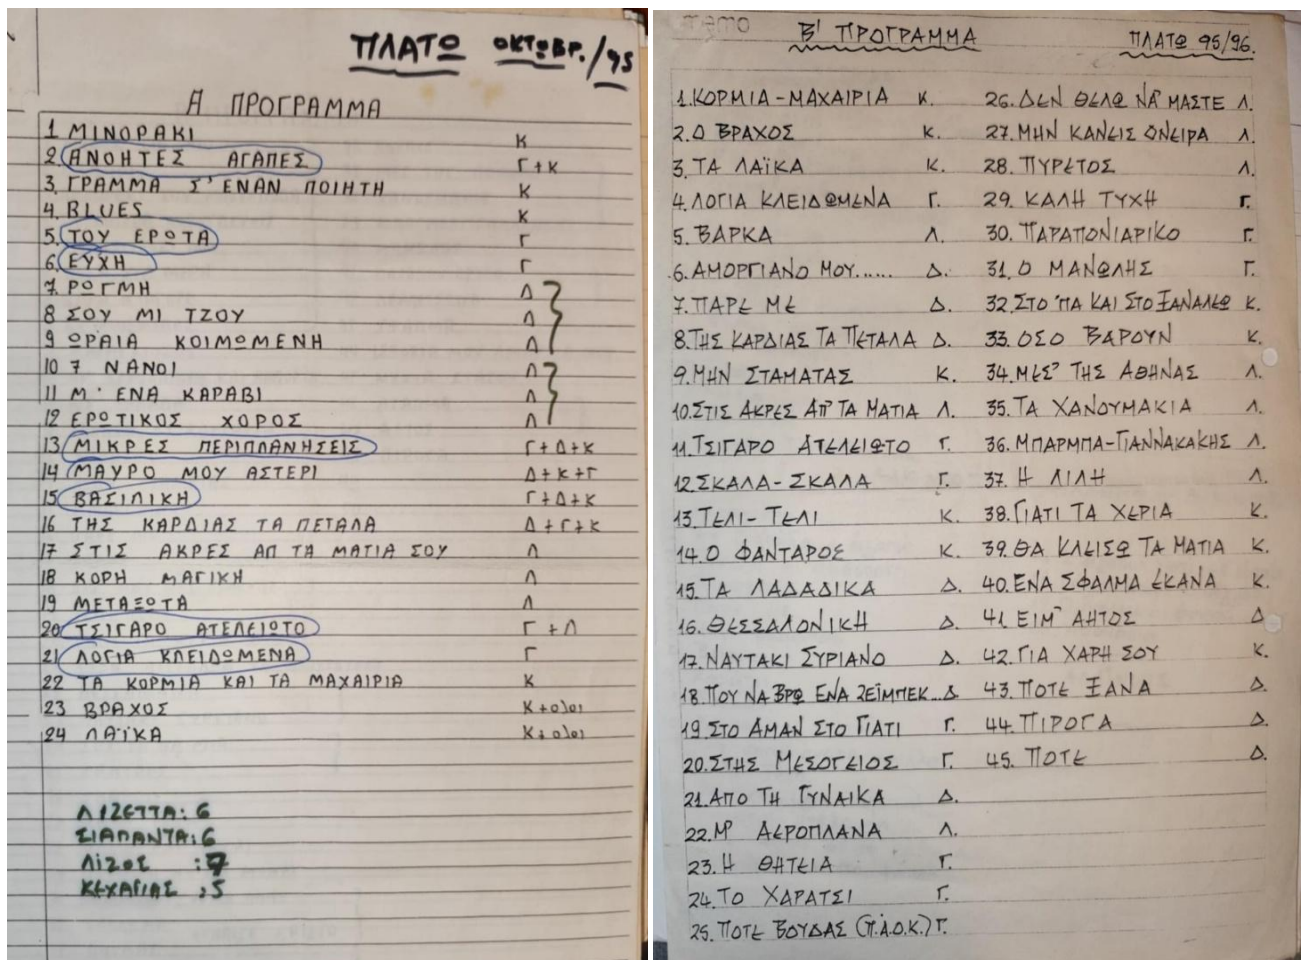 ΠΛΑΤΩ ΟΚΤΩΒΡ./95
Α ΠΡΟΓΡΑΜΜΑ
1 ΜΙΝΟΡΑΚΙ Κ
2. ΑΝΟΗΤΕΣ ΑΓΑΠΕΣ Γ+Κ
3. ΓΡΑΜΜΑ Σ'ΕΝΑΝ ΠΟΙΗΤΗ Κ
4. BLUES Κ
5. ΤΟΥ ΕΡΩΤΑ Γ
6. ΕΥΧΗ Γ
7. ΡΩΓΜΗ Λ
8 ΣΟΥ ΜΙ ΤΖΟΥ Λ
9 ΩΡΑΙΑ ΚΟΙΜΩΜΕΝΗ Λ
10 7 ΝΑΝΟΙ Λ
11 Μ' ΕΝΑ ΚΑΡΑΒΙ Λ
12 ΕΡΩΤΙΚΟΣ ΧΟΡΟΣ Λ
13 ΜΙΚΡΕΣ ΠΕΡΙΠΛΑΝΗΣΕΙΣ Γ+Δ+Κ
14 ΜΑΥΡΟ ΜΟΥ ΑΣΤΕΡΙ Δ+Κ+Γ
15 ΒΑΣΙΛΙΚΗ Γ+Δ+Κ
16 ΤΗΣ ΚΑΡΔΙΑΣ ΤΑ ΠΕΤΑΛΑ Δ+Γ+Κ
17 ΣΤΙΣ ΑΚΡΕΣ ΑΠ ΤΑ ΜΑΤΙΑ ΣΟΥ Λ
18 ΚΟΡΗ ΜΑΓΙΚΗ Λ
19 ΜΕΤΑΞΩΤΑ Λ
20 ΤΣΙΓΑΡΟ ΑΤΕΛΕΙΩΤΟ Γ+Λ
21 ΛΟΓΙΑ ΚΛΕΙΔΩΜΕΝΑ Γ
22 ΤΑ ΚΟΡΜΙΑ ΚΑΙ ΤΑ ΜΑΧΑΙΡΙΑ Κ
23 ΒΡΑΧΟΣ Κ+ολοι
24 ΛΑΪΚΑ Κ+ολοι
ΛΙΖΕΤΤΑ: 6
ΣΙΑΠΑΝΤΑ: 6
ΛΙΖΟΣ : 7
ΚΕΧΑΓΙΑΣ : 5
memo
Β' ΠΡΟΓΡΑΜΜΑ ΠΛΑΤΩ 95/96.
1. ΚΟΡΜΙΑ-ΜΑΧΑΙΡΙΑ Κ.
2. Ο ΒΡΑΧΟΣ Κ.
3. ΤΑ ΛΑΪΚΑ Κ.
4. ΛΟΓΙΑ ΚΛΕΙΔΩΜΕΝΑ Γ.
5. ΒΑΡΚΑ Λ.
6. ΑΜΟΡΓΙΑΝΟ ΜΟΥ...... Δ.
7. ΠΑΡΕ ΜΕ Δ.
8. ΤΗΣ ΚΑΡΔΙΑΣ ΤΑ ΠΕΤΑΛΑ Δ.
9. ΜΗΝ ΣΤΑΜΑΤΑΣ Κ.
10. ΣΤΙΣ ΑΚΡΕΣ ΑΠ' ΤΑ ΜΑΤΙΑ Λ.
11. ΤΣΙΓΑΡΟ ΑΤΕΛΕΙΩΤΟ Γ.
12. ΣΚΑΛΑ-ΣΚΑΛΑ Γ.
13. ΤΕΛΙ-ΤΕΛΙ Κ.
14. Ο ΦΑΝΤΑΡΟΣ Κ.
15. ΤΑ ΛΑΔΑΔΙΚΑ Δ.
16. ΘΕΣΣΑΛΟΝΙΚΗ Δ.
17. ΝΑΥΤΑΚΙ ΣΥΡΙΑΝΟ Δ.
18. ΠΟΥ ΝΑ ΒΡΩ ΕΝΑ ΖΕΪΜΠΕΚ... Δ
19. ΣΤΟ ΑΜΑΝ ΣΤΟ ΓΙΑΤΙ Γ.
20. ΣΤΗΣ ΜΕΣΟΓΕΙΟΣ Γ.
21. ΑΠΟ ΤΗ ΓΥΝΑΙΚΑ Δ.
22. Μ' ΑΕΡΟΠΛΑΝΑ Λ.
23. Η ΘΗΤΕΙΑ Γ.
24. ΤΟ ΧΑΡΑΤΣΙ Γ.
25. ΠΟΤΕ ΒΟΥΔΑΣ (Π.Α.Ο.Κ.) Γ.
26. ΔΕΝ ΘΕΛΩ ΝΑ' ΜΑΣΤΕ Λ.
27. ΜΗΝ ΚΑΝΕΙΣ ΟΝΕΙΡΑ Λ.
28. ΠΥΡΕΤΟΣ Λ.
29. ΚΑΛΗ ΤΥΧΗ Γ.
30. ΠΑΡΑΠΟΝΙΑΡΙΚΟ Γ.
31. Ο ΜΑΝΩΛΗΣ Γ.
32. ΣΤΟ 'ΠΑ ΚΑΙ ΣΤΟ ΞΑΝΑΛΕΩ Κ.
33. ΟΣΟ ΒΑΡΟΥΝ Κ.
34. ΜΕΣ' ΤΗΣ ΑΘΗΝΑΣ Λ.
35. ΤΑ ΧΑΝΟΥΜΑΚΙΑ Λ.
36. ΜΠΑΡΜΠΑ-ΓΙΑΝΝΑΚΑΚΗΣ Λ.
37. Η ΛΙΛΗ Λ.
38. ΓΙΑΤΙ ΤΑ ΧΕΡΙΑ Κ.
39. ΘΑ ΚΛΕΙΣΩ ΤΑ ΜΑΤΙΑ Κ.
40. ΕΝΑ ΣΦΑΛΜΑ ΕΚΑΝΑ Κ.
41. ΕΙΜ' ΑΗΤΟΣ Δ
42. ΓΙΑ ΧΑΡΗ ΣΟΥ Κ.
43. ΠΟΤΕ ΞΑΝΑ Δ.
44. ΠΙΡΟΓΑ Δ.
45. ΠΟΤΕ Δ.